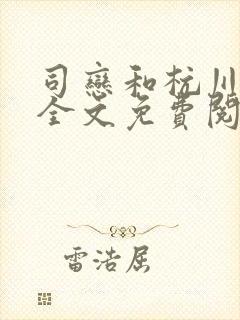 司戀和杭川
全文免費閱
雷浩屈